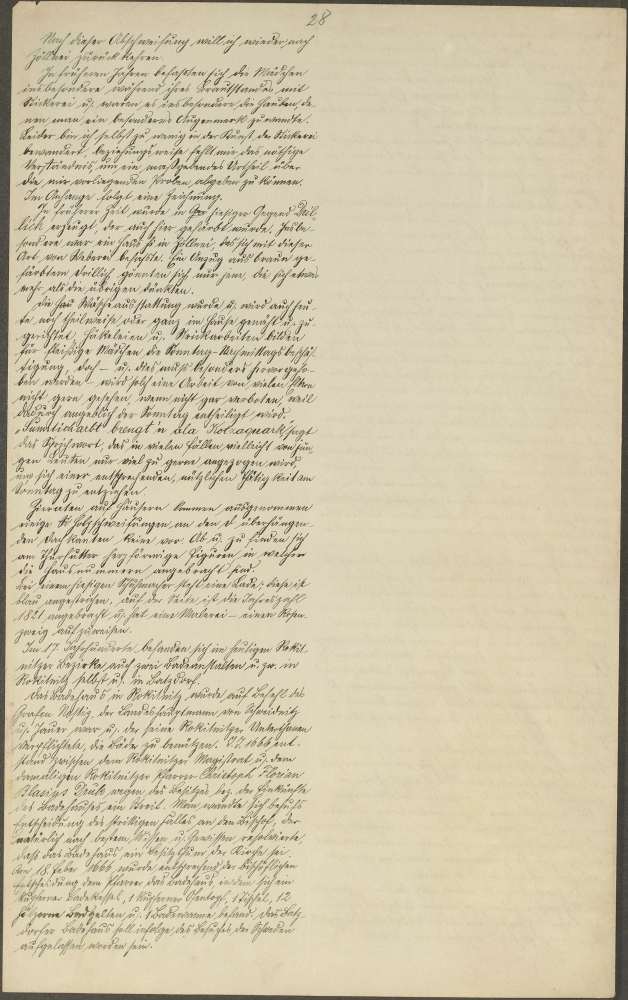 28
Nach dieser Abschweifung will ich wieder nach
Zöllnei zurückkehren.
In früheren Jahren befaßten sich die Mädchen
insbesondere während ihres Brautstandes mit
Stickerei u. waren es insbesondere die Hauben, de-
nen man ein besonderes Augenmerk zuwandte.
Leider bin ich selbst zu wenig in der Kunst der Stickerei
bewandert, beziehungsweise fehlt mir das nöthige
Verständnis, um ein maßgebendes Urtheil über
die mir vorliegenden Proben abgeben zu können.
Im Anhange folgt eine Zeichnung.
In früherer Zeit wurde in hiesiger Gegend Dril-
lich erzeugt, der auch hier gefärbt wurde, insbe-
sondere war ein Haus in Zöllnei, das sich mit dieser
Art von Weberei befasste. Ein Anzug aus braun ge-
färbtem Drillich gönnten sich nur jene, die sich etwas
mehr als die übrigen dünkten.
Die Wäscheausstattung wurde u. wird auch heu-
te noch theilweise oder ganz im Hause genäht u. zu-
gerichtet, Häkeleien u. Strickarbeiten bilden
für fleißige Mädchen die Sonntag-Nachmittagsbeschäf-
tigung, doch – u. dies muß besonders hervorgeho-
ben werden – wird solch eine Arbeit von vielen Alten
nicht gern gesehen, wenn nicht gar verboten, weil
dadurch angeblich der Sonntag entheiligt wird.
"Sunnticharbt brengt'n ala Kotzaquark" sagt
das Sprichwort, das in vielen Fällen vielleicht von jun-
gen Leuten nur viel zu gerne angezogen wird,
um sich einer entsprechenden, nützlichen Thätigkeit am
Sonntag zu entziehen.
Zieraten auf Häusern kommen ausgenommen
einige Holzschweifungen an den überhängen-
den Dachkanten keine vor. Ab u. zu finden sich
am Thürfutter herzförmige Figuren in welchen
die Hausnummern angebracht sind.
Bei einem hiesigen Schuhmacher steht eine Lade; diese ist
blau angestrichen, auf der Seite ist die Jahreszahl
1821 angebracht u. hat eine Malerei – einen Rosen-
zweig aufzuweisen.
Im 17. Jahrhunderte befanden sich im heutigen Rokit-
nitzer Bezirke auch zwei Badeanstalten u. zw. in
Rokitnitz selbst u. in Batzdorf.
Das Badehaus in Rokitnitz wurde auf Befehl des
Grafen Nostiz, der Landeshauptmann von Schweidnitz
u. Jauer war u. der seine Rokitnitzer Unterthanen
verpflichtete, die Bäder zu benützen. 1666 ent-
stand zwischen dem Rokitnitzer Magistrat u. dem
damaligen Rokitnitzer Pfarrer Christoph Florian
Blasius wegen des Besitzes bez. der Einkünfte
des Badehauses ein Streit. Man wandte sich behufs
Entscheidung des strittigen Falles an den Bischof, der
natürlich nach bestem Wissen u. Gewissen resolvierte,
daß das Badehaus ein Besitzthum der Kirche sei.
Am 18. Feber 1666 wurde entsprechend der bischöflichen
Entscheidung dem Pfarrer das Badehaus, in dem sich ein
kupferner Badekessel, 1 kupferner 1 Schaff, 12
hölzerne Badgelten u. 1 Badewanne befand. Das Batz-
dorfer Badehaus soll infolge des Besuches der Schweden
aufgelassen worden sein.